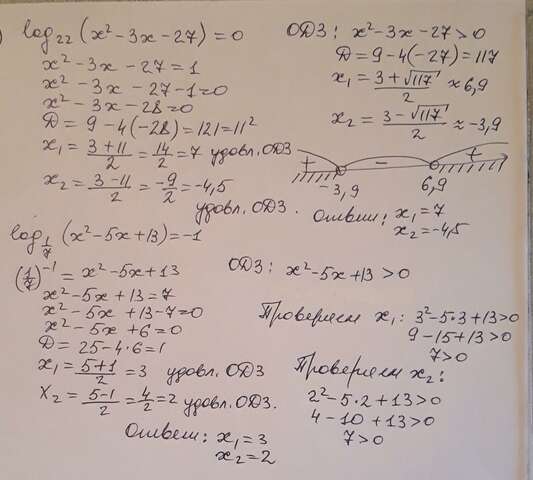 log₂₂(x²-3x-27)=0
x²-3x-27=1
x²-3x-27-1=0
x²-3x-28=0
D=9-4(-28)=121=11²
x₁=(3+11)/2=14/2=7 удовл. ОДЗ
x₂=(3-11)/2=-9/2=-4,5
удовл. ОДЗ.
ОДЗ: x²-3x-27>0
D=9-4(-27)=117
x₁=(3+√117)/2≈6,9
x₂=(3-√117)/2≈-3,9
+ - +
-3,9 6,9
Ответ: x₁=7
x₂=-4,5
log₁/₇(x²-5x+13)=-1
(1/7)⁻¹=x²-5x+13
x²-5x+13=7
x²-5x+13-7=0
x²-5x+6=0
D=25-4·6=1
x₁=(5+1)/2=3 удовл. ОДЗ
x₂=(5-1)/2=4/2=2 удовл. ОДЗ.
Ответ: x₁=3
x₂=2
ОДЗ: x²-5x+13>0
Проверяем x₁: 3²-5·3+13>0
9-15+13>0
7>0
Проверяем x₂:
2²-5·2+13>0
4-10+13>0
7>0